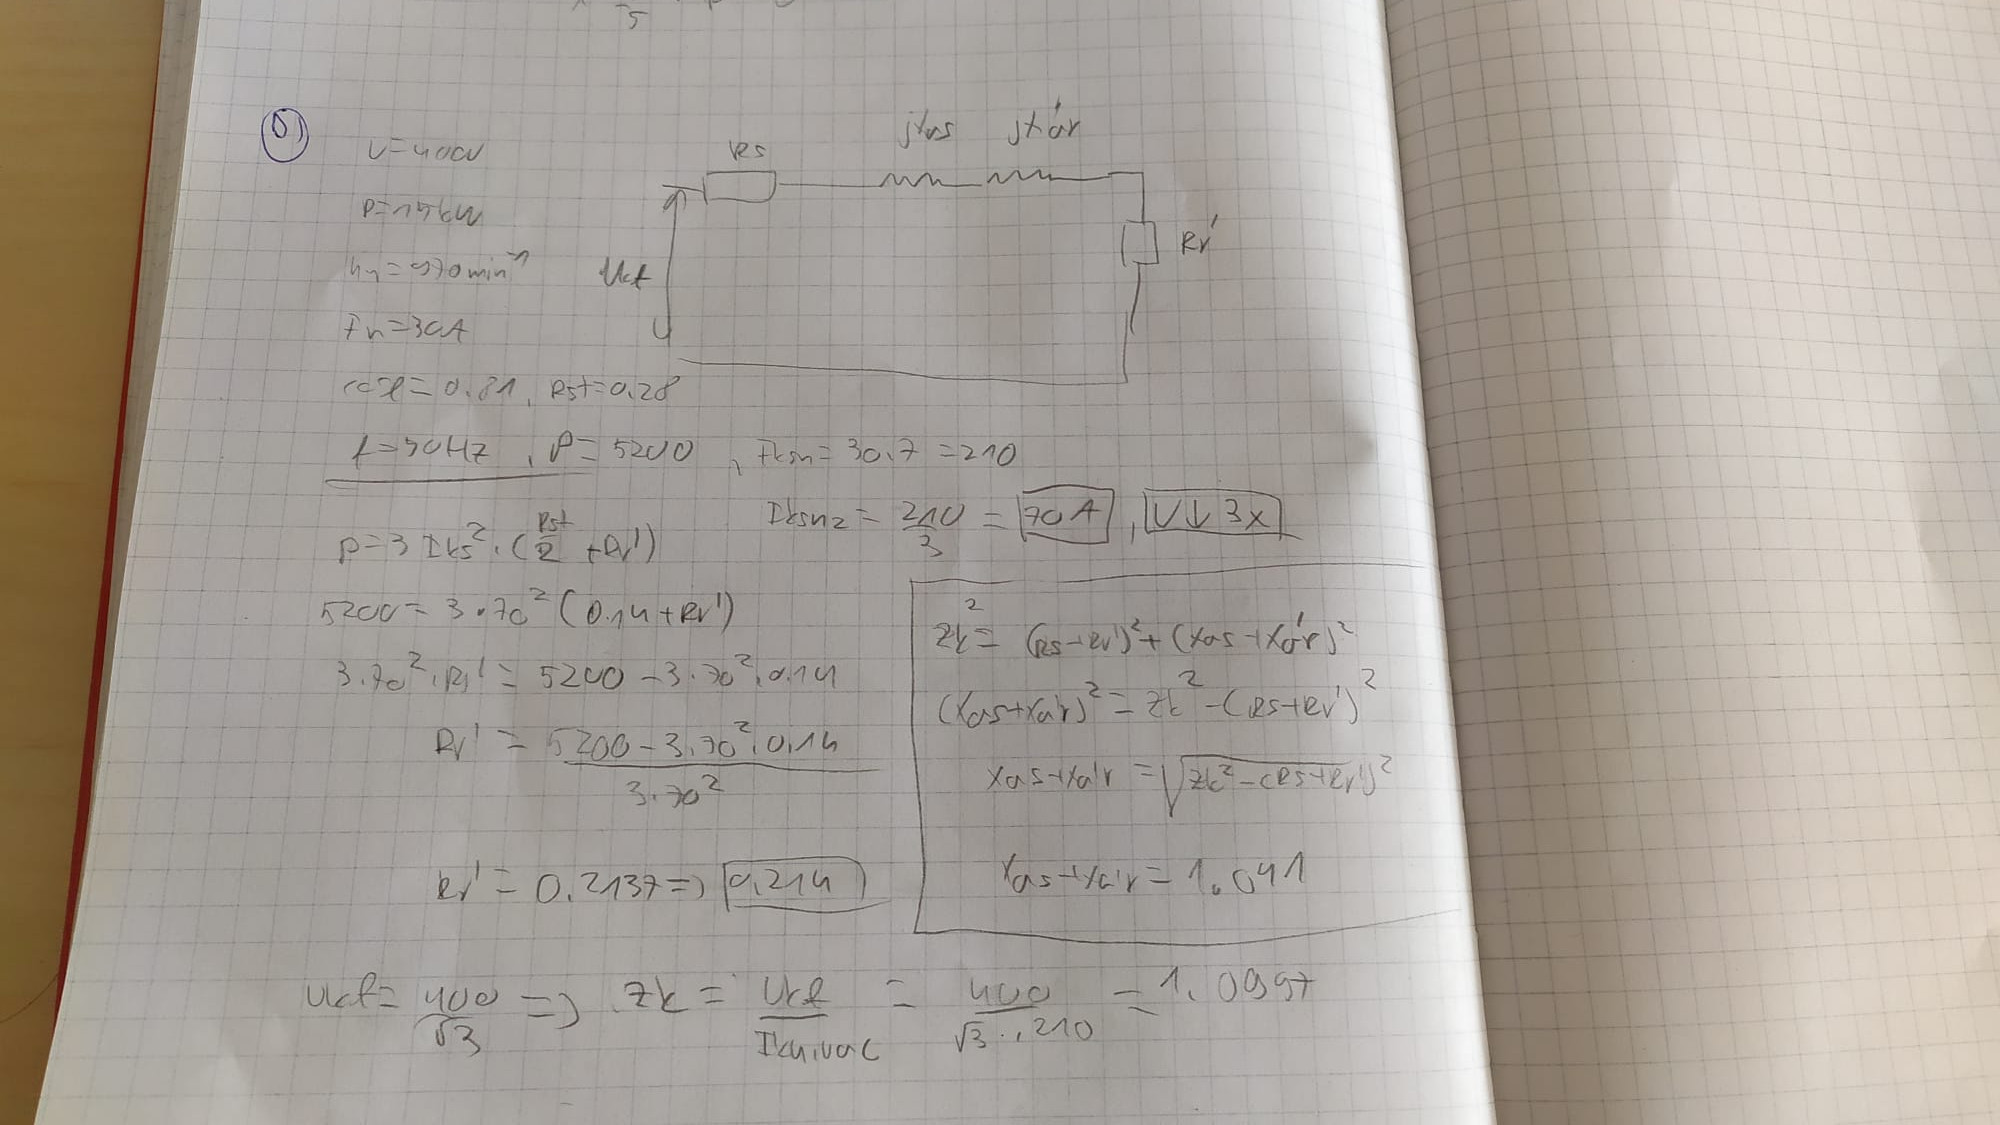 5
б)
U=400V
P=15kW
nn=970min⁻¹
In=30A
cosφ=0.81, Rst=0.28
f=50Hz, P=5200, Iksn=30.7=210
Rs
jXσs jX'σr
Ucf
Rr'
Iksn2 = 210/3 = 70A, U↓ 3x
P=3 Iks² · (Rst/2 + Rr')
5200 = 3·70² (0.14+Rr')
3·70²·Rr' = 5200 - 3·70²·0.14
Rr' = 5200 - 3·70²·0.14 / 3·70²
Rr' = 0.2137 => 0.214
Zk² = (Rs+Rr')² + (Xσs+Xσ'r)²
(Xσs+Xσ'r)² = Zk² - (Rs+Rr')²
Xσs+Xσ'r = √Zk² - (Rs+Rr')²
Xσs+Xσ'r = 1.041
Ucf = 400/√3 => Zk = Ucf/ = 400/√3·210 = 1.0997